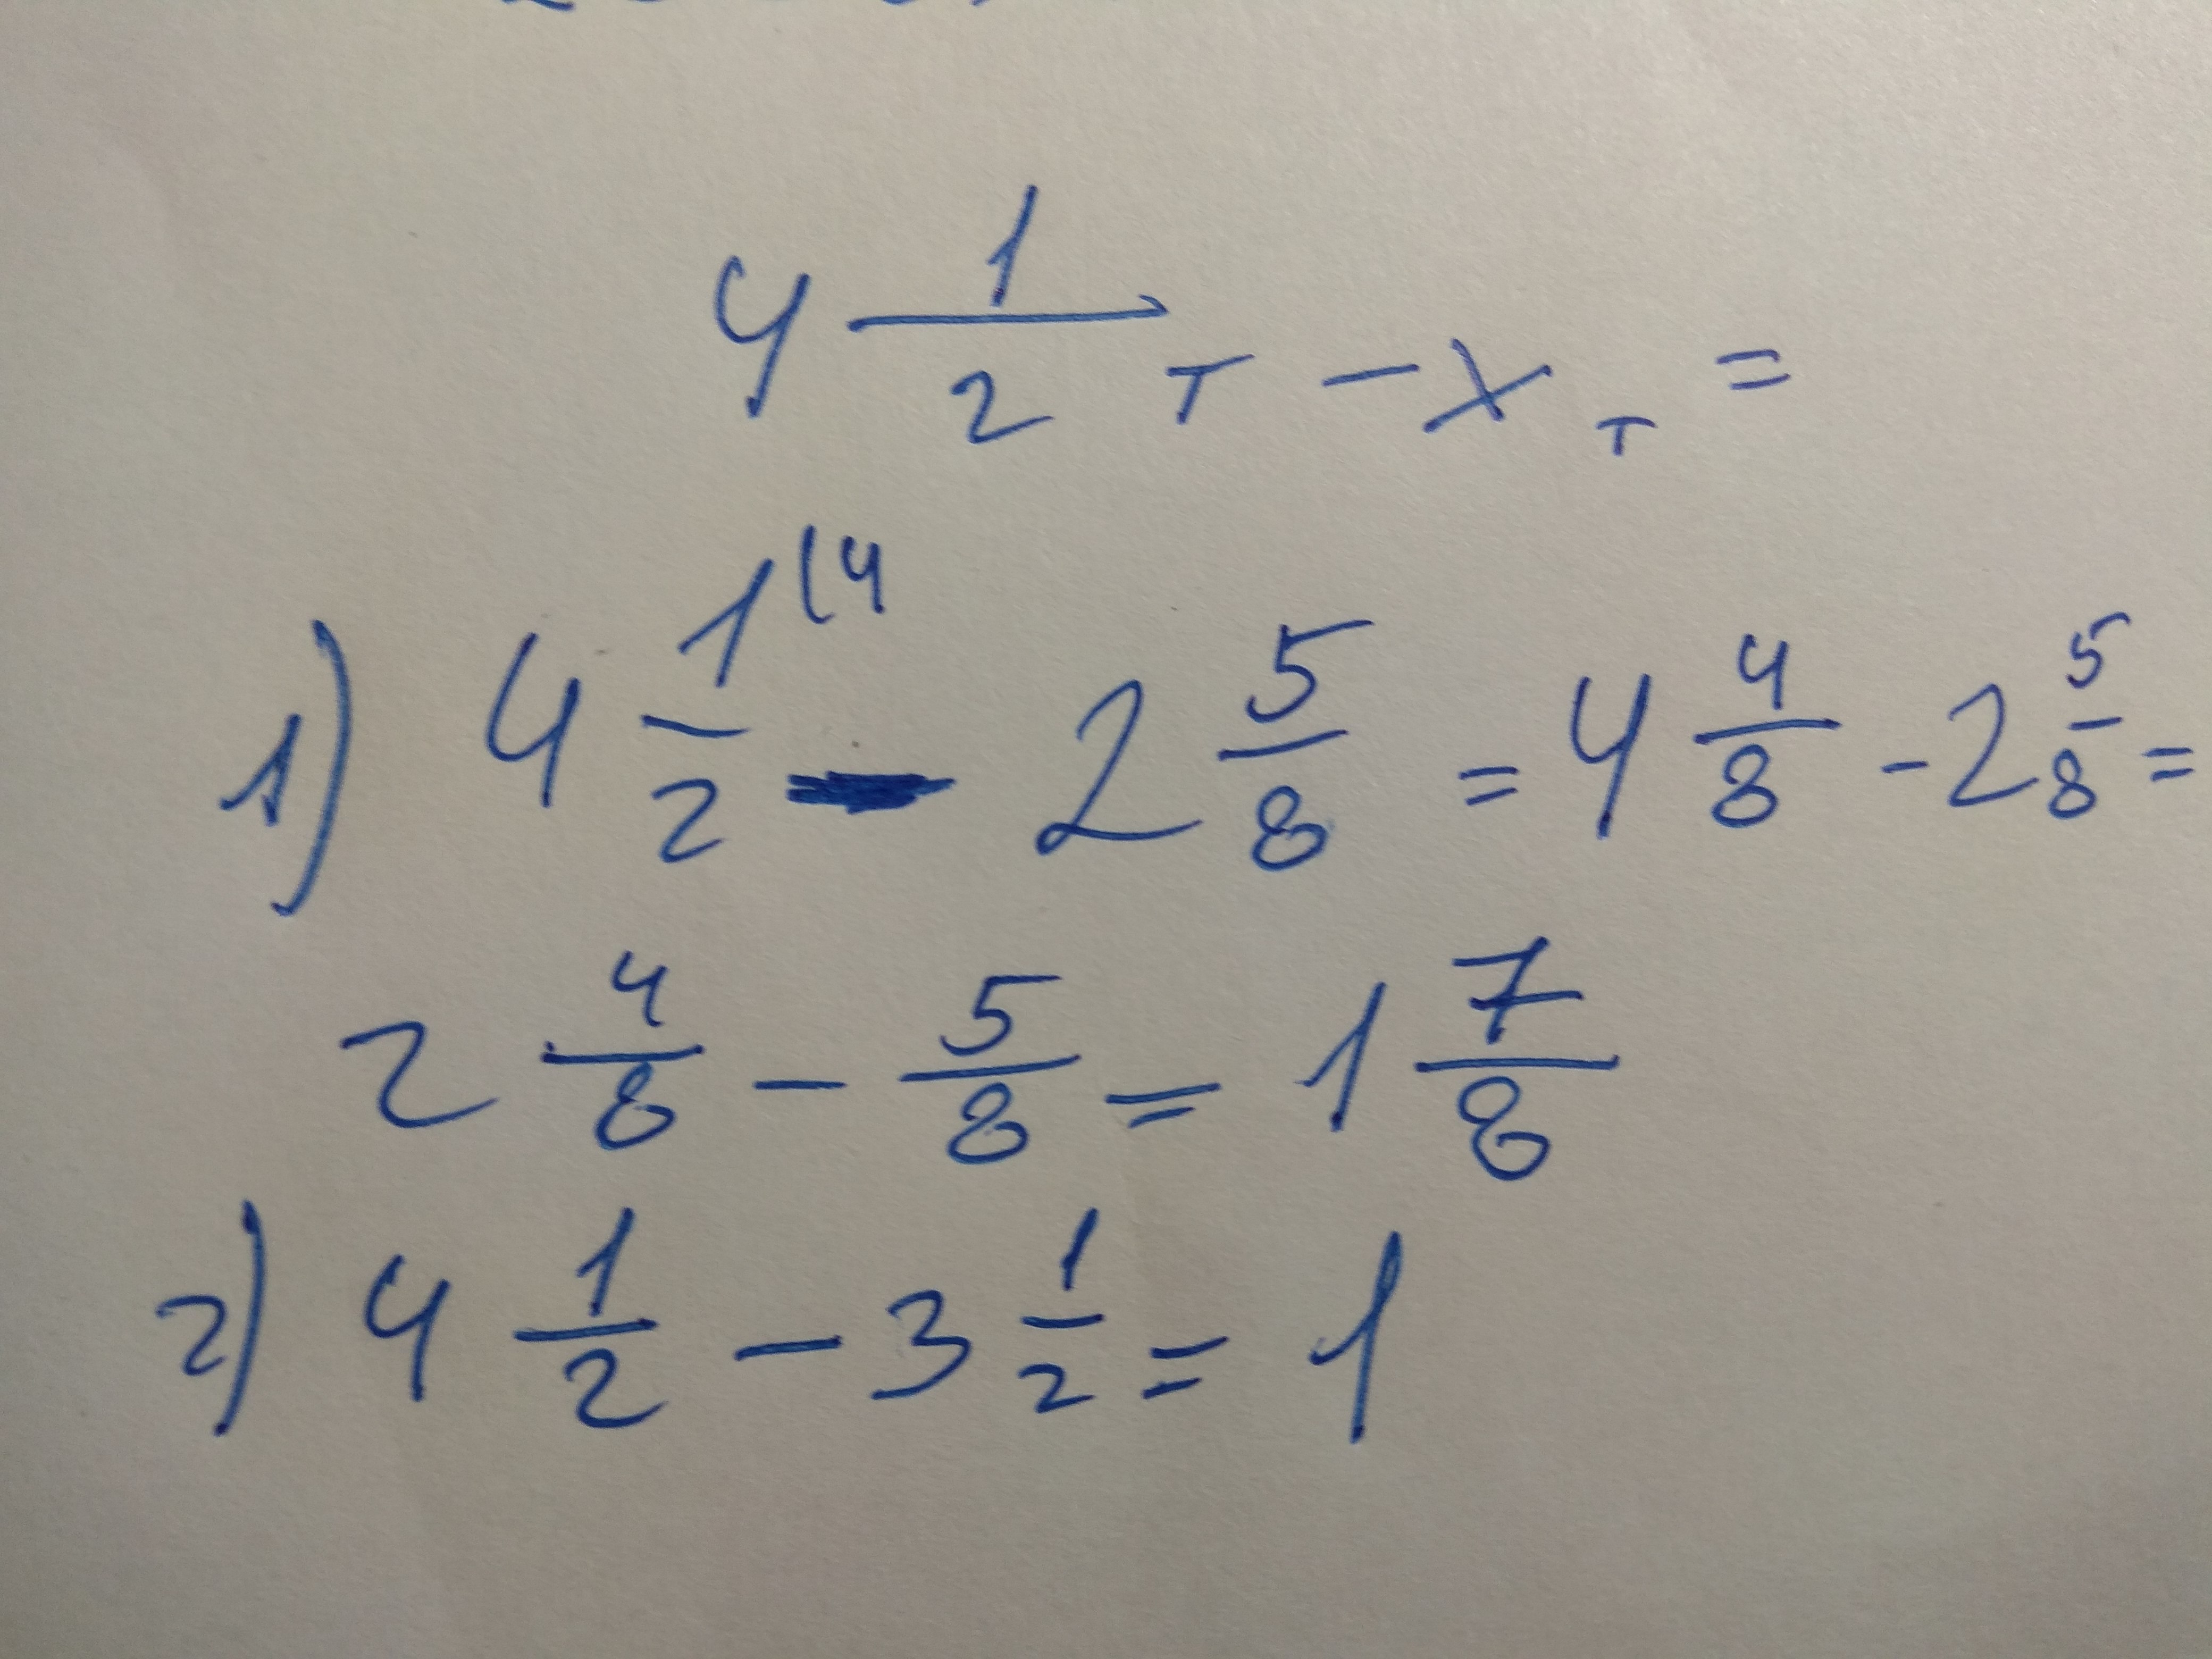 4 1/2 т - x т =
1) 4 1(4/2 - 2 5/8 = 4 4/8 - 2 5/8 =
2 4/8 - 5/8 = 1 7/8
2) 4 1/2 - 3 1/2 = 1